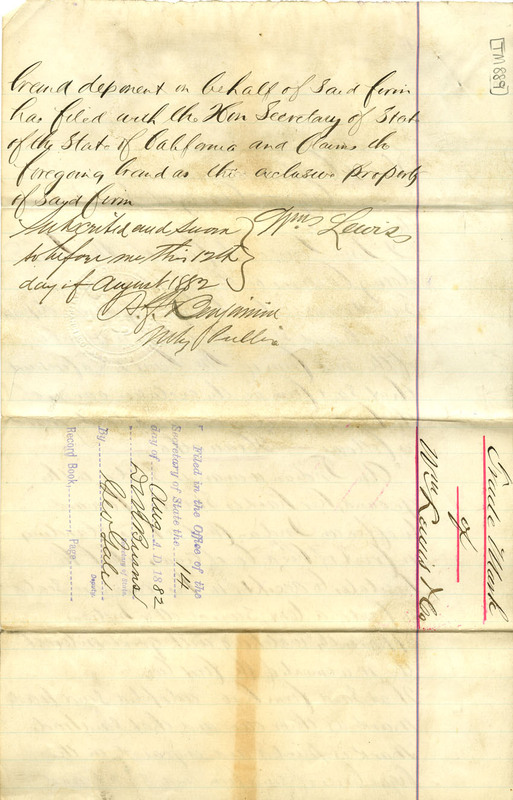 TM889
brand deponent on behalf of said firm
has filed with the Hon Secretary of State
of the State of California and claims the
foregoing brand as the exclusive Property
of said firm
Subscribed and sworn
to before me this 12th
day of August 1882
Wm Lewis
Benjamin
Filed in the Office of the
Secretary of State the 14
day of Aug A. D. 1882
D M Burns
Secretary of State.
By
Deputy.
Record Book, Page
Trade Mark
of
Wm Lewis & Co